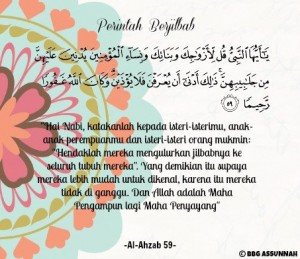 Perintah Berjilbab
يَٰٓأَيُّهَا ٱلنَّبِىُّ قُل لِّأَزْوَٰجِكَ وَبَنَاتِكَ وَنِسَآءِ ٱلْمُؤْمِنِينَ يُدْنِينَ عَلَيْهِنَّ
مِن جَلَٰبِيبِهِنَّ ۚ ذَٰلِكَ أَدْنَىٰٓ أَن يُعْرَفْنَ فَلَا يُؤْذَيْنَ ۗ وَكَانَ ٱللَّهُ غَفُورًا
رَّحِيمًا ٥٩
"Hai Nabi, katakanlah kepada isteri-isterimu, anak-
anak-perempuanmu dan isteri-isteri orang mukmin:
"Hendaklah mereka mengulurkan jilbabnya ke
seluruh tubuh mereka". Yang demikian itu supaya
mereka lebih mudah untuk dikenal, karena itu mereka
tidak di ganggu. Dan Allah adalah Maha
Pengampun lagi Maha Penyayang"
-Al-Ahzab 59-
© BBG ASSUNNAH